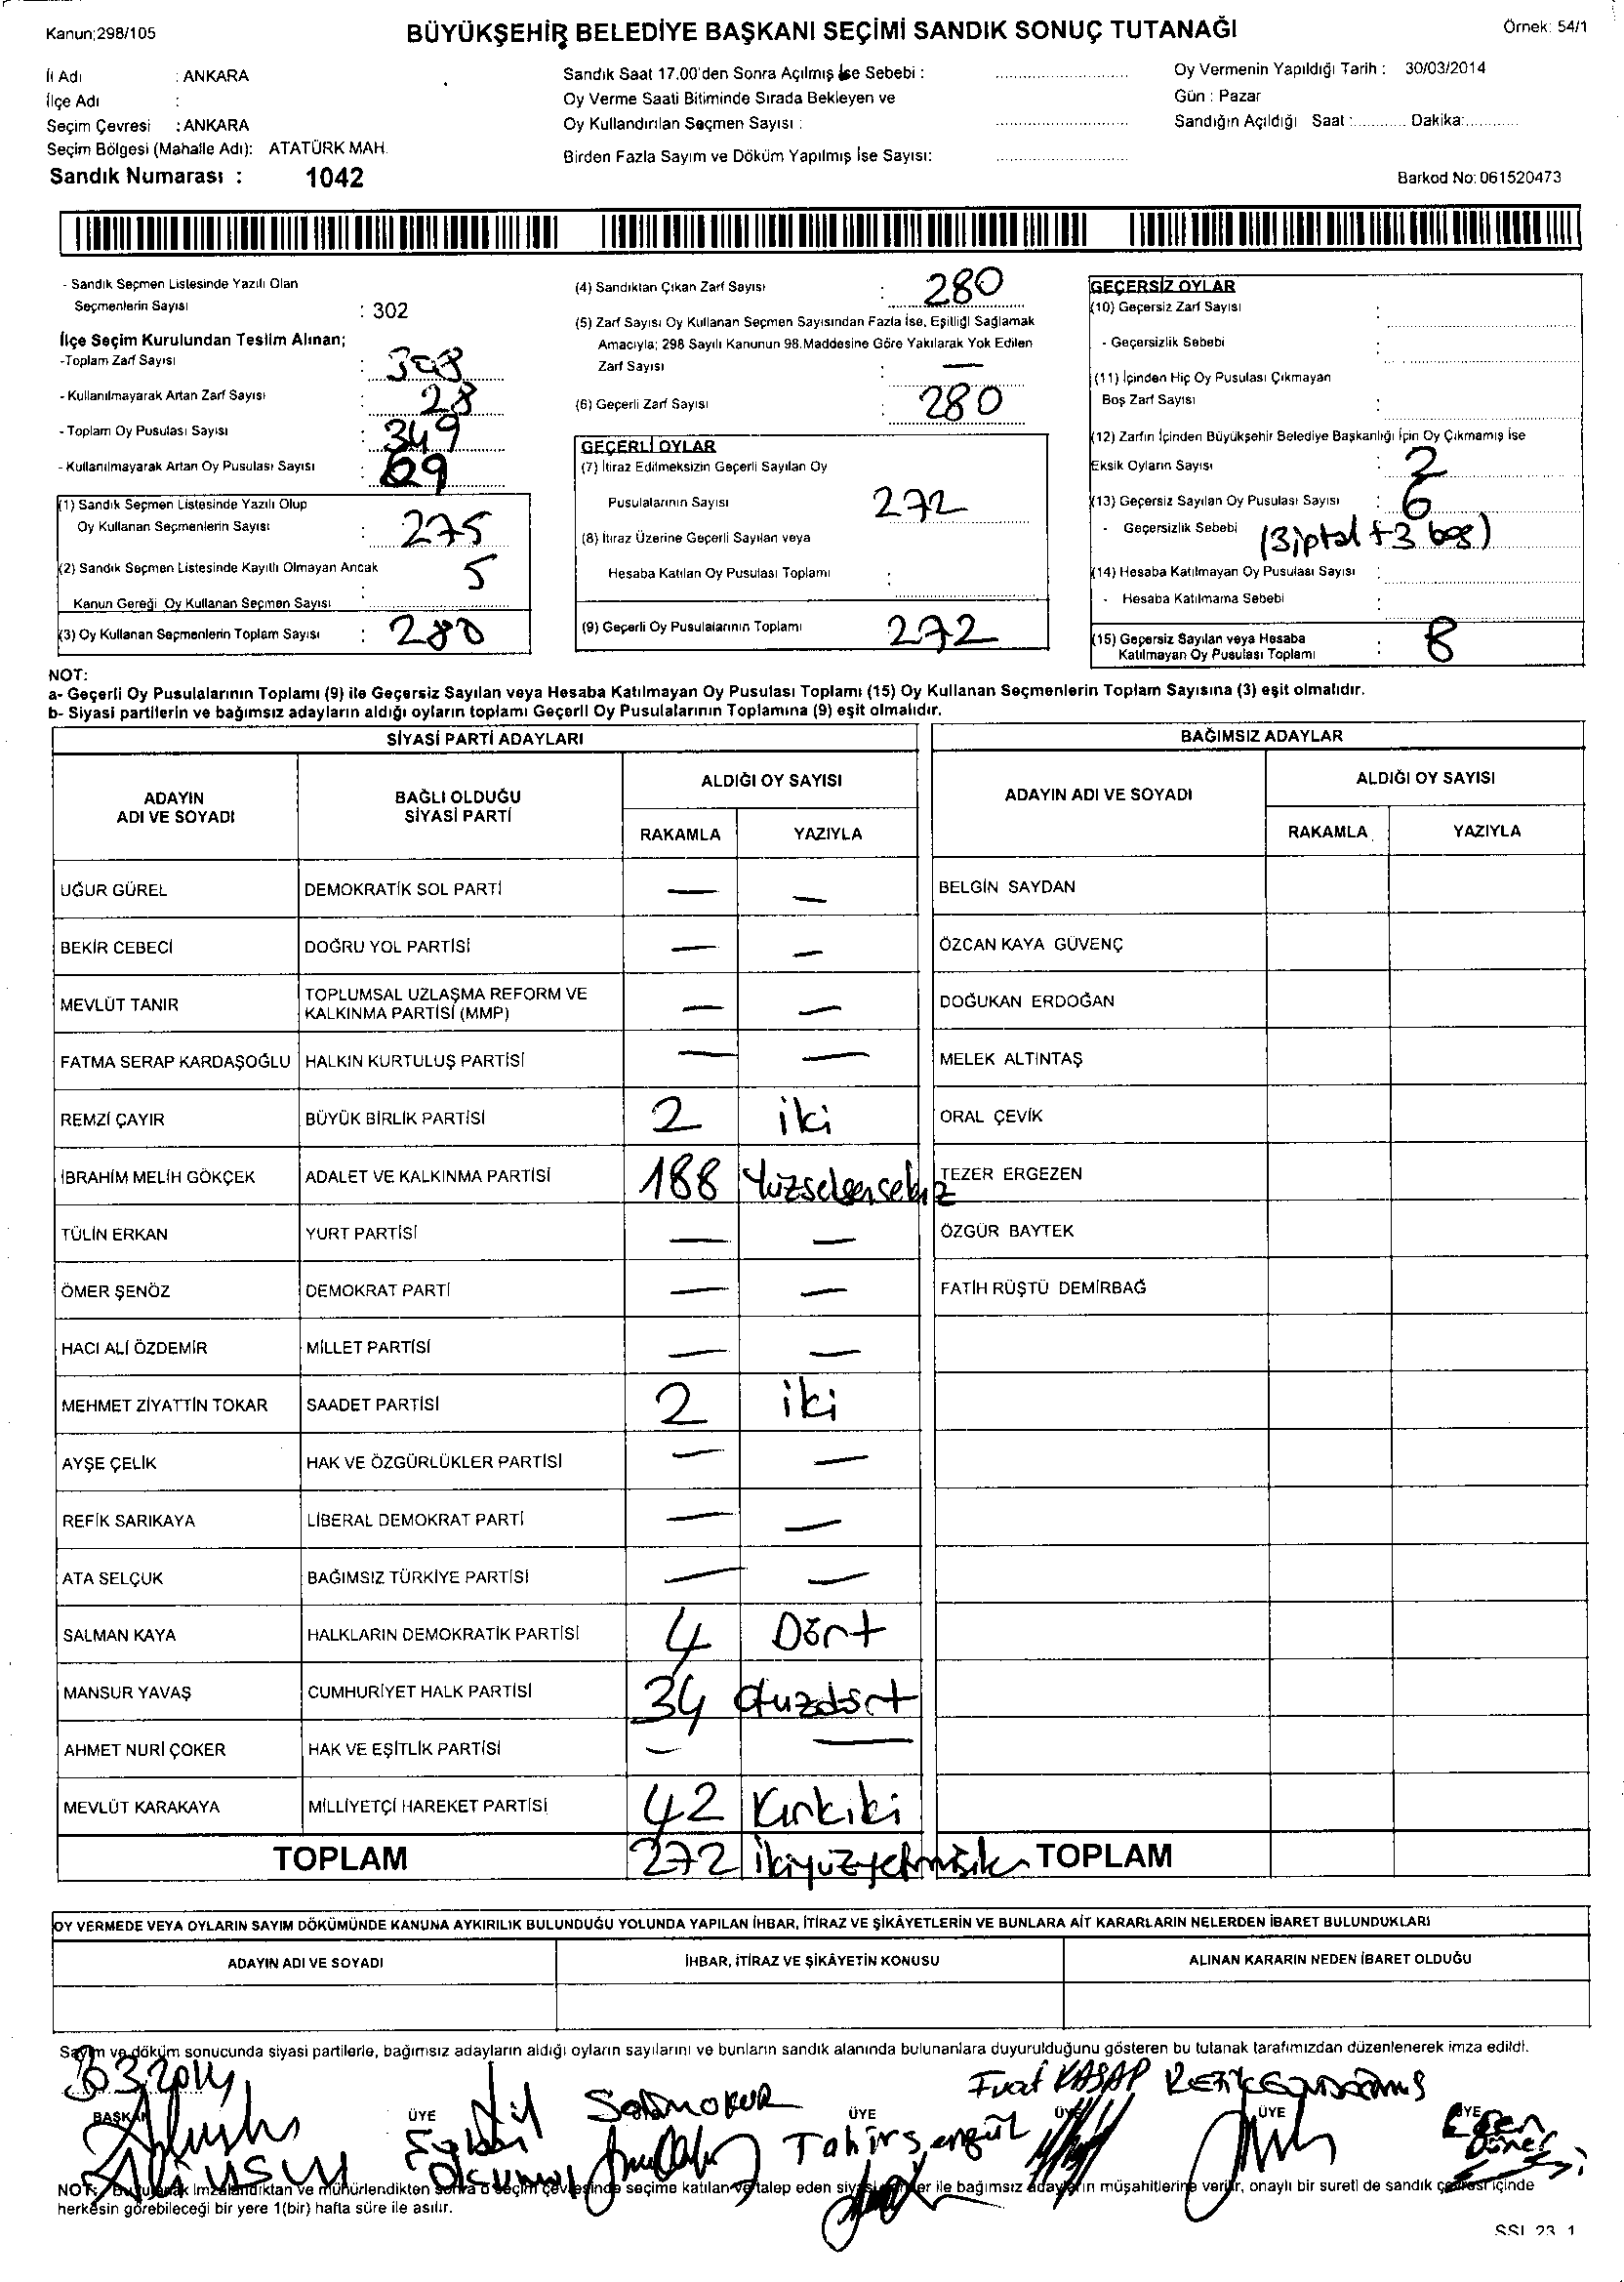 Kanun;298/105
BÜYÜKŞEHİR BELEDİYE BAŞKANI SEÇİMİ SANDIK SONUÇ TUTANAĞI
Örnek: 54/1
İl Adı : ANKARA
İlçe Adı :
Seçim Çevresi : ANKARA
Seçim Bölgesi (Mahalle Adı): ATATÜRK MAH.
Sandık Numarası : 1042
Sandık Saat 17.00'den Sonra Açılmış İse Sebebi :
Oy Verme Saati Bitiminde Sırada Bekleyen ve
Oy Kullandırılan Seçmen Sayısı :
Birden Fazla Sayım ve Döküm Yapılmış İse Sayısı:
Oy Vermenin Yapıldığı Tarih : 30/03/2014
Gün : Pazar
Sandığın Açıldığı Saat :............ Dakika:............
Barkod No: 061520473
- Sandık Seçmen Listesinde Yazılı Olan
Seçmenlerin Sayısı : 302
İlçe Seçim Kurulundan Teslim Alınan;
-Toplam Zarf Sayısı : 308
- Kullanılmayarak Artan Zarf Sayısı : 28
- Toplam Oy Pusulası Sayısı : 349
- Kullanılmayarak Artan Oy Pusulası Sayısı : 69
(1) Sandık Seçmen Listesinde Yazılı Olup
Oy Kullanan Seçmenlerin Sayısı : 275
(2) Sandık Seçmen Listesinde Kayıtlı Olmayan Ancak
Kanun Gereği Oy Kullanan Seçmen Sayısı : 5
(3) Oy Kullanan Seçmenlerin Toplam Sayısı : 280
(4) Sandıktan Çıkan Zarf Sayısı : 280
(5) Zarf Sayısı Oy Kullanan Seçmen Sayısından Fazla İse, Eşitliği Sağlamak
Amacıyla; 298 Sayılı Kanunun 98.Maddesine Göre Yakılarak Yok Edilen
Zarf Sayısı : —
(6) Geçerli Zarf Sayısı : 280
GEÇERLİ OYLAR
(7) İtiraz Edilmeksizin Geçerli Sayılan Oy
Pusulalarının Sayısı 272
(8) İtiraz Üzerine Geçerli Sayılan veya
Hesaba Katılan Oy Pusulası Toplamı :
(9) Geçerli Oy Pusulalarının Toplamı 272
GEÇERSİZ OYLAR
(10) Geçersiz Zarf Sayısı :
- Geçersizlik Sebebi :
(11) İçinden Hiç Oy Pusulası Çıkmayan
Boş Zarf Sayısı :
(12) Zarfın İçinden Büyükşehir Belediye Başkanlığı İçin Oy Çıkmamış ise
Eksik Oyların Sayısı : 2
(13) Geçersiz Sayılan Oy Pusulası Sayısı : 6
- Geçersizlik Sebebi (3 iptal + 3 boş)
(14) Hesaba Katılmayan Oy Pusulası Sayısı :
- Hesaba Katılmama Sebebi :
(15) Geçersiz Sayılan veya Hesaba
Katılmayan Oy Pusulası Toplamı : 8
NOT:
a- Geçerli Oy Pusulalarının Toplamı (9) ile Geçersiz Sayılan veya Hesaba Katılmayan Oy Pusulası Toplamı (15) Oy Kullanan Seçmenlerin Toplam Sayısına (3) eşit olmalıdır.
b- Siyasi partilerin ve bağımsız adayların aldığı oyların toplamı Geçerli Oy Pusulalarının Toplamına (9) eşit olmalıdır.
SİYASİ PARTİ ADAYLARI
ADAYIN ADI VE SOYADI
BAĞLI OLDUĞU SİYASİ PARTİ
ALDIĞI OY SAYISI
RAKAMLA YAZIYLA
UĞUR GÜREL DEMOKRATİK SOL PARTİ — —
BEKİR CEBECİ DOĞRU YOL PARTİSİ — —
MEVLÜT TANIR TOPLUMSAL UZLAŞMA REFORM VE KALKINMA PARTİSİ (MMP) — —
FATMA SERAP KARDAŞOĞLU HALKIN KURTULUŞ PARTİSİ — —
REMZİ ÇAYIR BÜYÜK BİRLİK PARTİSİ 2 iki
İBRAHİM MELİH GÖKÇEK ADALET VE KALKINMA PARTİSİ 188 Yüzseksensekiz
TÜLİN ERKAN YURT PARTİSİ — —
ÖMER ŞENÖZ DEMOKRAT PARTİ — —
HACI ALİ ÖZDEMİR MİLLET PARTİSİ — —
MEHMET ZİYATTİN TOKAR SAADET PARTİSİ 2 iki
AYŞE ÇELİK HAK VE ÖZGÜRLÜKLER PARTİSİ — —
REFİK SARIKAYA LİBERAL DEMOKRAT PARTİ — —
ATA SELÇUK BAĞIMSIZ TÜRKİYE PARTİSİ — —
SALMAN KAYA HALKLARIN DEMOKRATİK PARTİSİ 4 Dört
MANSUR YAVAŞ CUMHURİYET HALK PARTİSİ 34 Otuzdört
AHMET NURİ ÇOKER HAK VE EŞİTLİK PARTİSİ — —
MEVLÜT KARAKAYA MİLLİYETÇİ HAREKET PARTİSİ 42 Kırkiki
TOPLAM 272 İkiyüzyetmişiki
BAĞIMSIZ ADAYLAR
ADAYIN ADI VE SOYADI
ALDIĞI OY SAYISI
RAKAMLA YAZIYLA
BELGİN SAYDAN
ÖZCAN KAYA GÜVENÇ
DOĞUKAN ERDOĞAN
MELEK ALTINTAŞ
ORAL ÇEVİK
TEZER ERGEZEN
ÖZGÜR BAYTEK
FATİH RÜŞTÜ DEMİRBAĞ
TOPLAM
OY VERMEDE VEYA OYLARIN SAYIM DÖKÜMÜNDE KANUNA AYKIRILIK BULUNDUĞU YOLUNDA YAPILAN İHBAR, İTİRAZ VE ŞİKÂYETLERİN VE BUNLARA AİT KARARLARIN NELERDEN İBARET BULUNDUKLARI
ADAYIN ADI VE SOYADI
İHBAR, İTİRAZ VE ŞİKÂYETİN KONUSU
ALINAN KARARIN NEDEN İBARET OLDUĞU
Sayım ve döküm sonucunda siyasi partilerle, bağımsız adayların aldığı oyların sayılarını ve bunların sandık alanında bulunanlara duyurulduğunu gösteren bu tutanak tarafımızdan düzenlenerek imza edildi.
30.3.2014
Fuat KASAP
BAŞKAN ÜYE ÜYE ÜYE ÜYE ÜYE
Tahir Şengül
NOT: Bu tutanak imzalandıktan ve mühürlendikten sonra o seçim çevresinde seçime katılan ve talep eden siyasi partiler ile bağımsız adayların müşahitlerine verilir, onaylı bir sureti de sandık çevresi içinde
herkesin görebileceği bir yere 1(bir) hafta süre ile asılır.